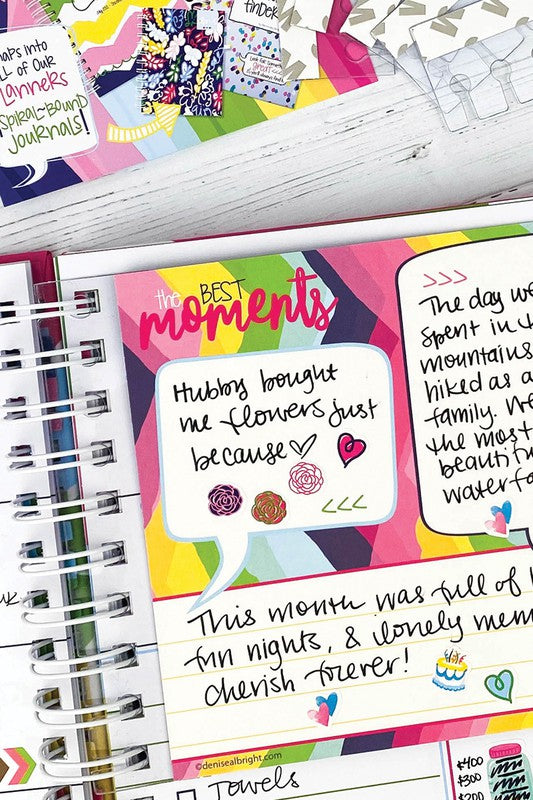 LL of our
Planners
Spiral-Bound
Journals!
the BEST
moments
Hubby bought
me flowers just
because
>>>
The day we
spent in t
mountains
hiked as a
family. We
the most
beautifu
waterfa
<<<
This month was full of
fun nights, & lovely mem
cherish forever!
©denisealbright.com
Towels
$400
$300
$200